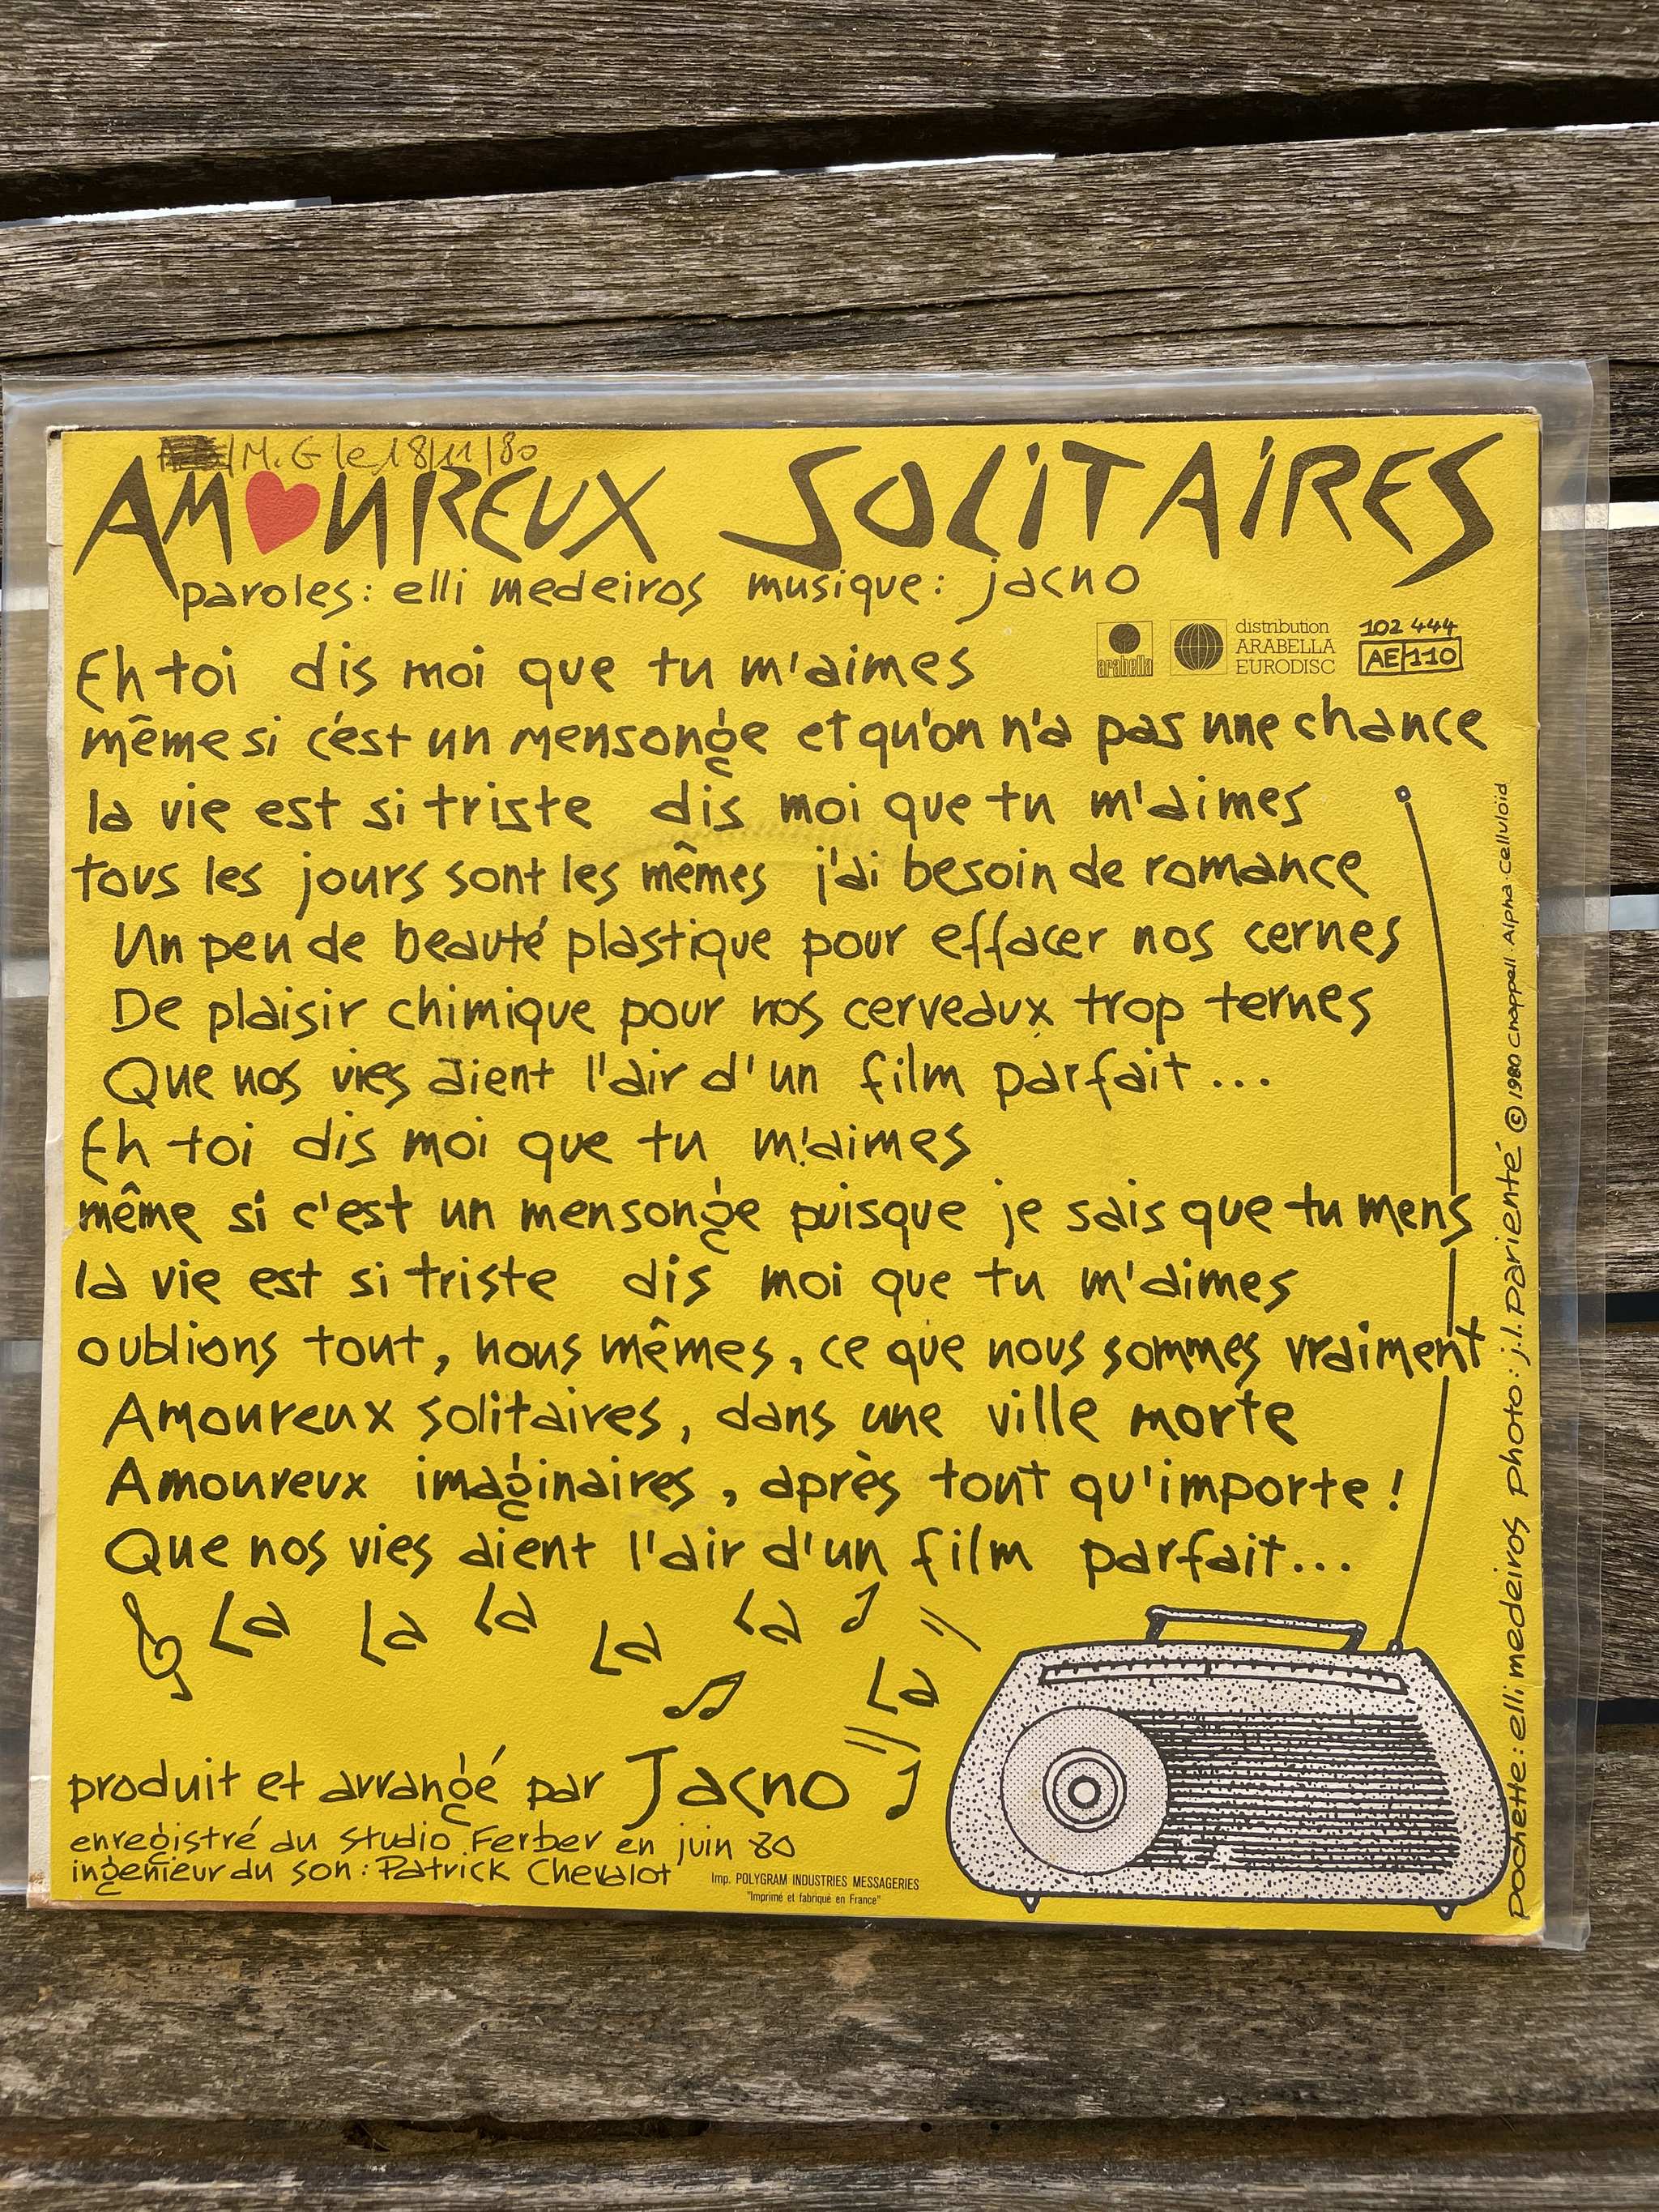 M.G le 18/11/80
AMOUREUX SOLITAIRES
paroles: elli medeiros musique: jacno
arabella
distribution
ARABELLA
EURODISC
102 444
AE 110
Eh toi dis moi que tu m'aimes
même si c'est un mensonge et qu'on n'a pas une chance
la vie est si triste dis moi que tu m'aimes
tous les jours sont les mêmes j'ai besoin de romance
Un peu de beauté plastique pour effacer nos cernes
De plaisir chimique pour nos cerveaux trop ternes
Que nos vies aient l'air d'un film parfait...
Eh toi dis moi que tu m'aimes
même si c'est un mensonge puisque je sais que tu mens
la vie est si triste dis moi que tu m'aimes
oublions tout, nous mêmes, ce que nous sommes vraiment
Amoureux solitaires, dans une ville morte
Amoureux imaginaires, après tout qu'importe!
Que nos vies aient l'air d'un film parfait...
La La La La La La
produit et arrangé par Jacno
enregistré au studio Ferber en juin 80
ingenieur du son: Patrick Chevalot
Imp. POLYGRAM INDUSTRIES MESSAGERIES
"Imprimé et fabriqué en France"
pochette: elli medeiros photo: j.l. parienté © 1980 Chappell. Alpha. Celluloïd